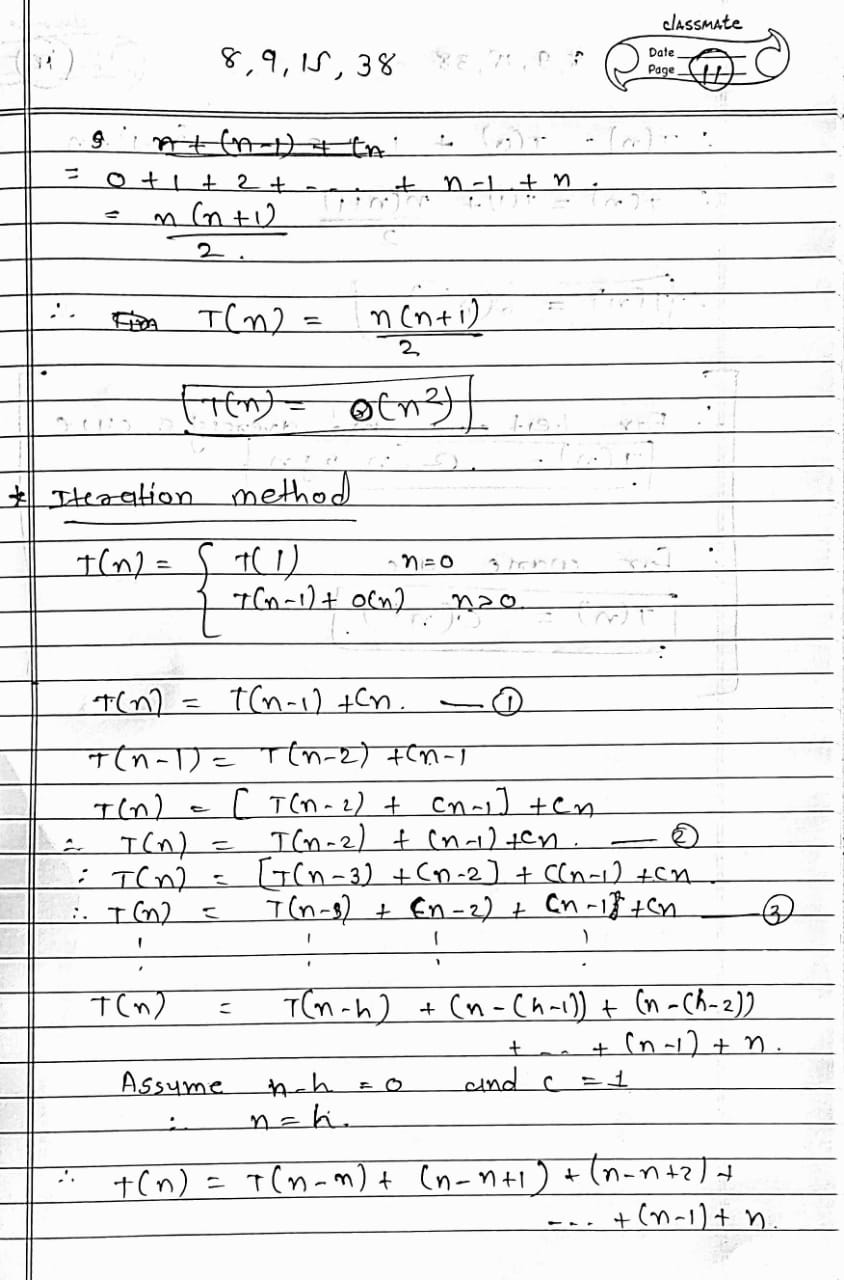 classmate
8, 9, 15, 38
Date
Page 11
n + (n-1) + (n
= 0 + 1 + 2 + - - . . + n-1 + n .
= n(n+1)
2 .
∴ T(n) = n(n+1)
2
T(n) = O(n²)
* Iteration method
T(n) = { T(1) n=0
T(n-1) + O(n) n>0.
T(n) = T(n-1) + Cn. — ①
T(n-1) = T(n-2) + Cn-1
T(n) = [ T(n-2) + Cn-1] + Cn
∴ T(n) = T(n-2) + (n-1) + Cn. — ②
: T(n) = [T(n-3) + (n-2] + C(n-1) + Cn
∴ T(n) = T(n-3) + (n-2) + (n-1) + Cn — ③
T(n) = T(n-h) + (n-(h-1)) + (n-(h-2))
+ - - + (n-1) + n.
Assume n-h = 0 and c = 1
∴ n = h.
∴ T(n) = T(n-n) + (n-n+1) + (n-n+2) +
---- + (n-1) + n.